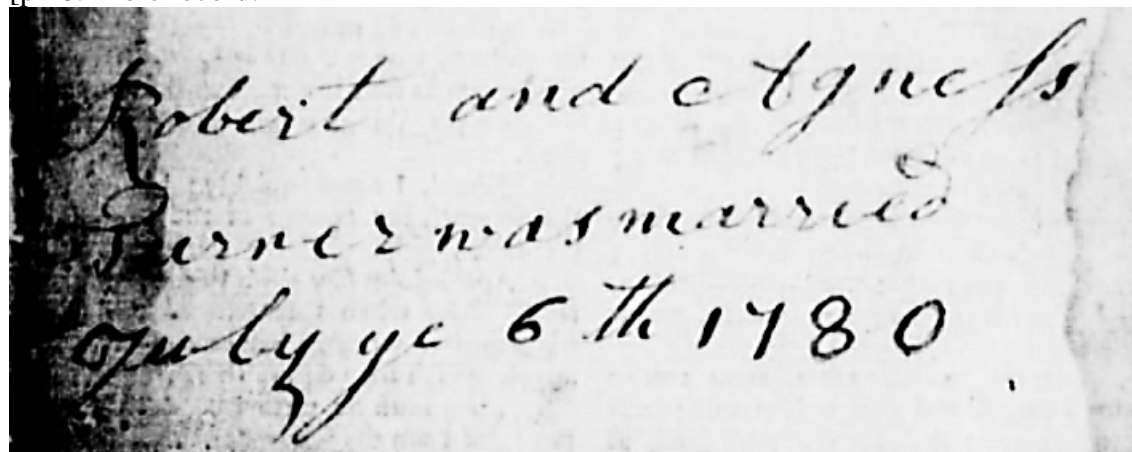 Robert and Agneſs
Turner was married
July ye 6th 1780